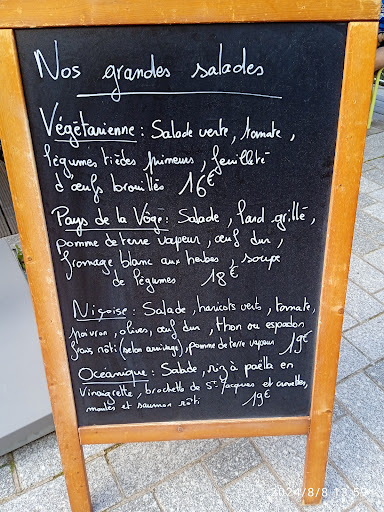 Nos grandes salades
Végétarienne : Salade verte, tomate,
légumes tièdes primeurs, feuilleté
d'œufs brouillés 16€
Pays de la Vôge : Salade, lard grillé,
pomme de terre vapeur, œuf dur,
fromage blanc aux herbes, soupe
de légumes 18€
Niçoise : Salade, haricots verts, tomate,
poivron, olives, œuf dur, thon ou espadon
frais rôti (selon arrivage), pomme de terre vapeur 19€
Océanique : Salade, riz à paëlla en
vinaigrette, brochette de St Jacques et crevettes,
moules et saumon rôti 19€
2024/8/8 13:59